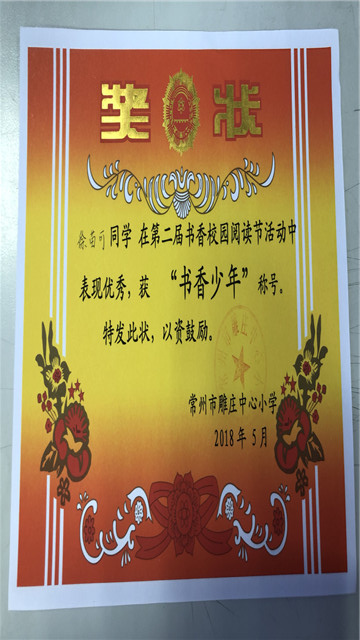 奖状
同学 在第二届书香校园阅读节活动中
表现优秀，获 “书香少年” 称号。
特发此状，以资鼓励。
常州市雕庄中心小学
2018 年 5 月